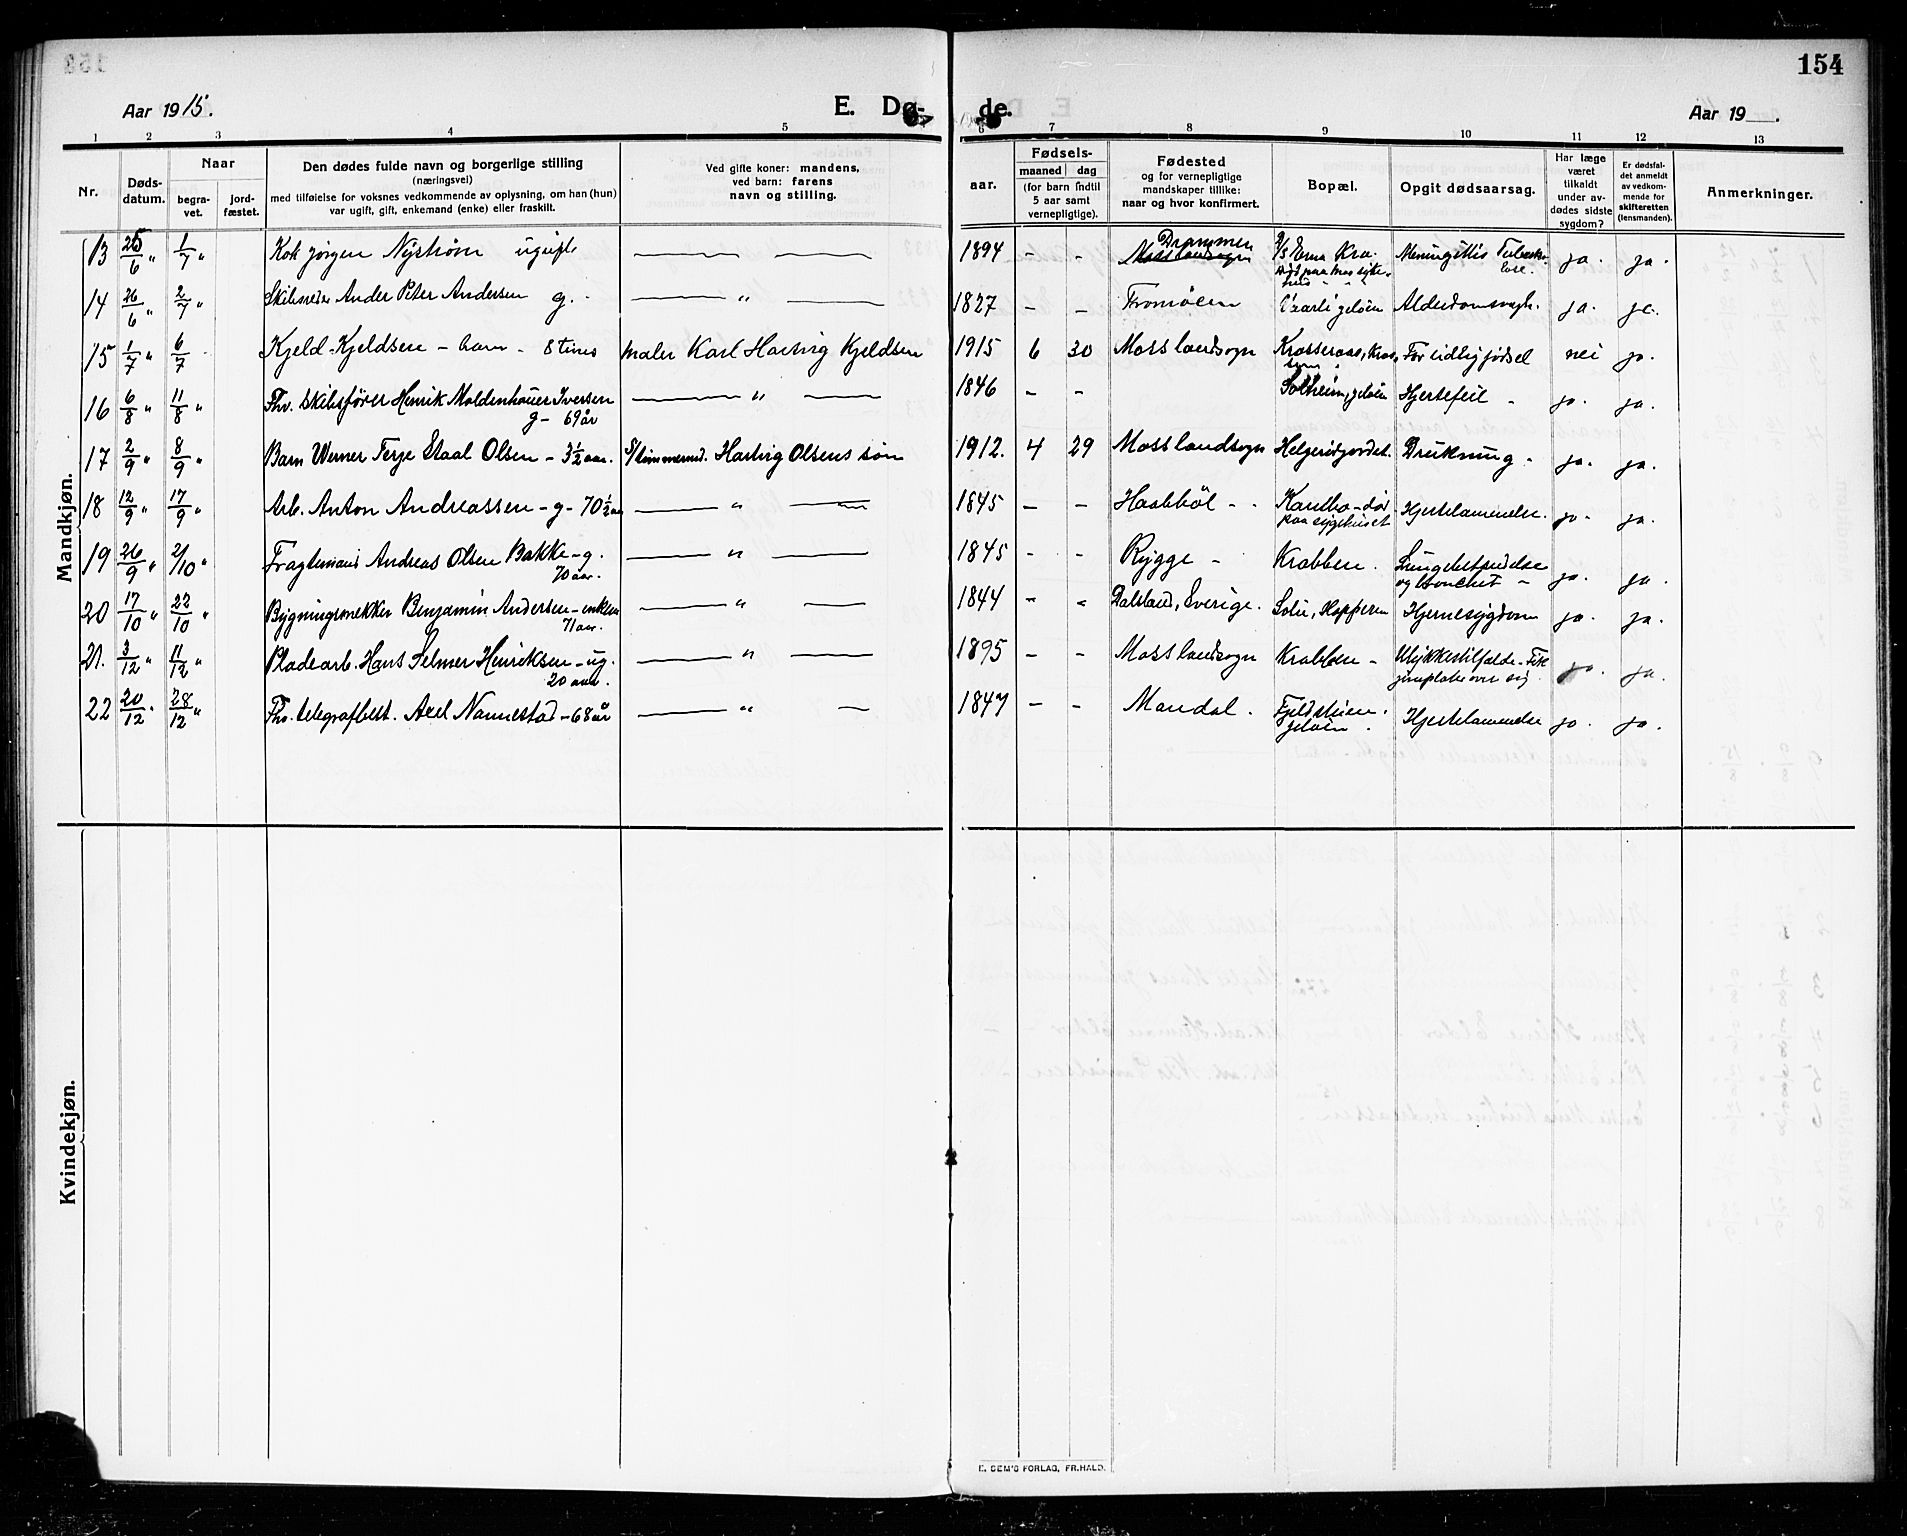 154
Aar 1915.
E. Dø- de.
Aar 19
1 2 3 4 5 6 7 8 9 10 11 12 13
Nr.
Døds-datum.
Naar
begra-vet.
jord-fæstet.
Den dødes fulde navn og borgerlige stilling
(næringsvei)
med tilføielse for voksnes vedkommende av oplysning, om han (hun)
var ugift, gift, enkemand (enke) eller fraskilt.
Ved gifte koner: mandens,
ved barn: farens
navn og stilling.
aar.
Fødsels-
maaned dag
(for barn indtil
5 aar samt
vernepligtige).
Fødested
og for vernepligtige
mandskaper tillike:
naar og hvor konfirmert.
Bopæl.
Opgit dødsaarsag.
Har læge
været
tilkaldt
under av-
dødes sidste
sygdom?
Er dødsfal-
det anmeldt
av vedkom-
mende for
skifteretten
(lensmanden).
Anmerkninger.
Mandkjøn.
13 25/6 " 1/7 " Kok Jörgen Nyström ugift 1894 - - Drammen Moss landsogn Erna Kra. Meningitis ja. ja.
14 26/6 " 2/7 " Skibsreder Ander Peter Andersen g. - " 1827 - - Tromöen jeløen ja. ja.
15 1/7 " 6/7 Kjeld Kjeldsen - barn - 8 times Maler Karl Hartvig Kjeldsen 1915 6 30 Moss landsogn For tidlig födsel nei ja.
16 6/8 " 11/8 " Fhv. Skibsförer Henrik Moldenhauer Iversen
g - 69 år " 1846 - - Solheim, jeløen Hjertefeil - ja. ja.
17 2/9 " 8/9 " Barn Werner Terje Staal Olsen - 3½ aar. Hartvig Olsens sön 1912. 4 29 Moss landsogn Helgerödjordet. Drukning - ja. ja.
18 12/9 " 17/9 " Arb. Anton Andreassen - g - 70½ aar " 1845 - - Haabböl - Kantbo - død
paa sygehuset Hjertelammelse. ja - ja.
19 26/9 " 2/10 " Fragtemand Andreas Olsen Bakke - g.
70 aar. " 1845 - - Rygge - Krabben. Lungebetændelse
og bronchit - ja. ja.
20 17/10 " 22/10 " Bygningssnekker Benjamin Andersen - enkem
71 aar. " 1844 - " Dalsland, Sverige. Solli, Kopperen Hjernesygdom ja. ja.
21. 3/12 " 11/12 " Pladearb. Hans Selmer Henriksen - ug.
20 aar. " 1895 - - Moss landsogn Krabben - Ulykkestilfælde - Fik
jernplate over sig ja. ja.
22 20/12 " 28/12 " Fhv. telegrafbest. Axel Nannestad - 68 år " 1847 - - Mandal. Fjeldstuen
jeløen. Hjertelammelse ja. ja.
Kvindekjøn.
E. SEM'S FORLAG, FR.HALD.